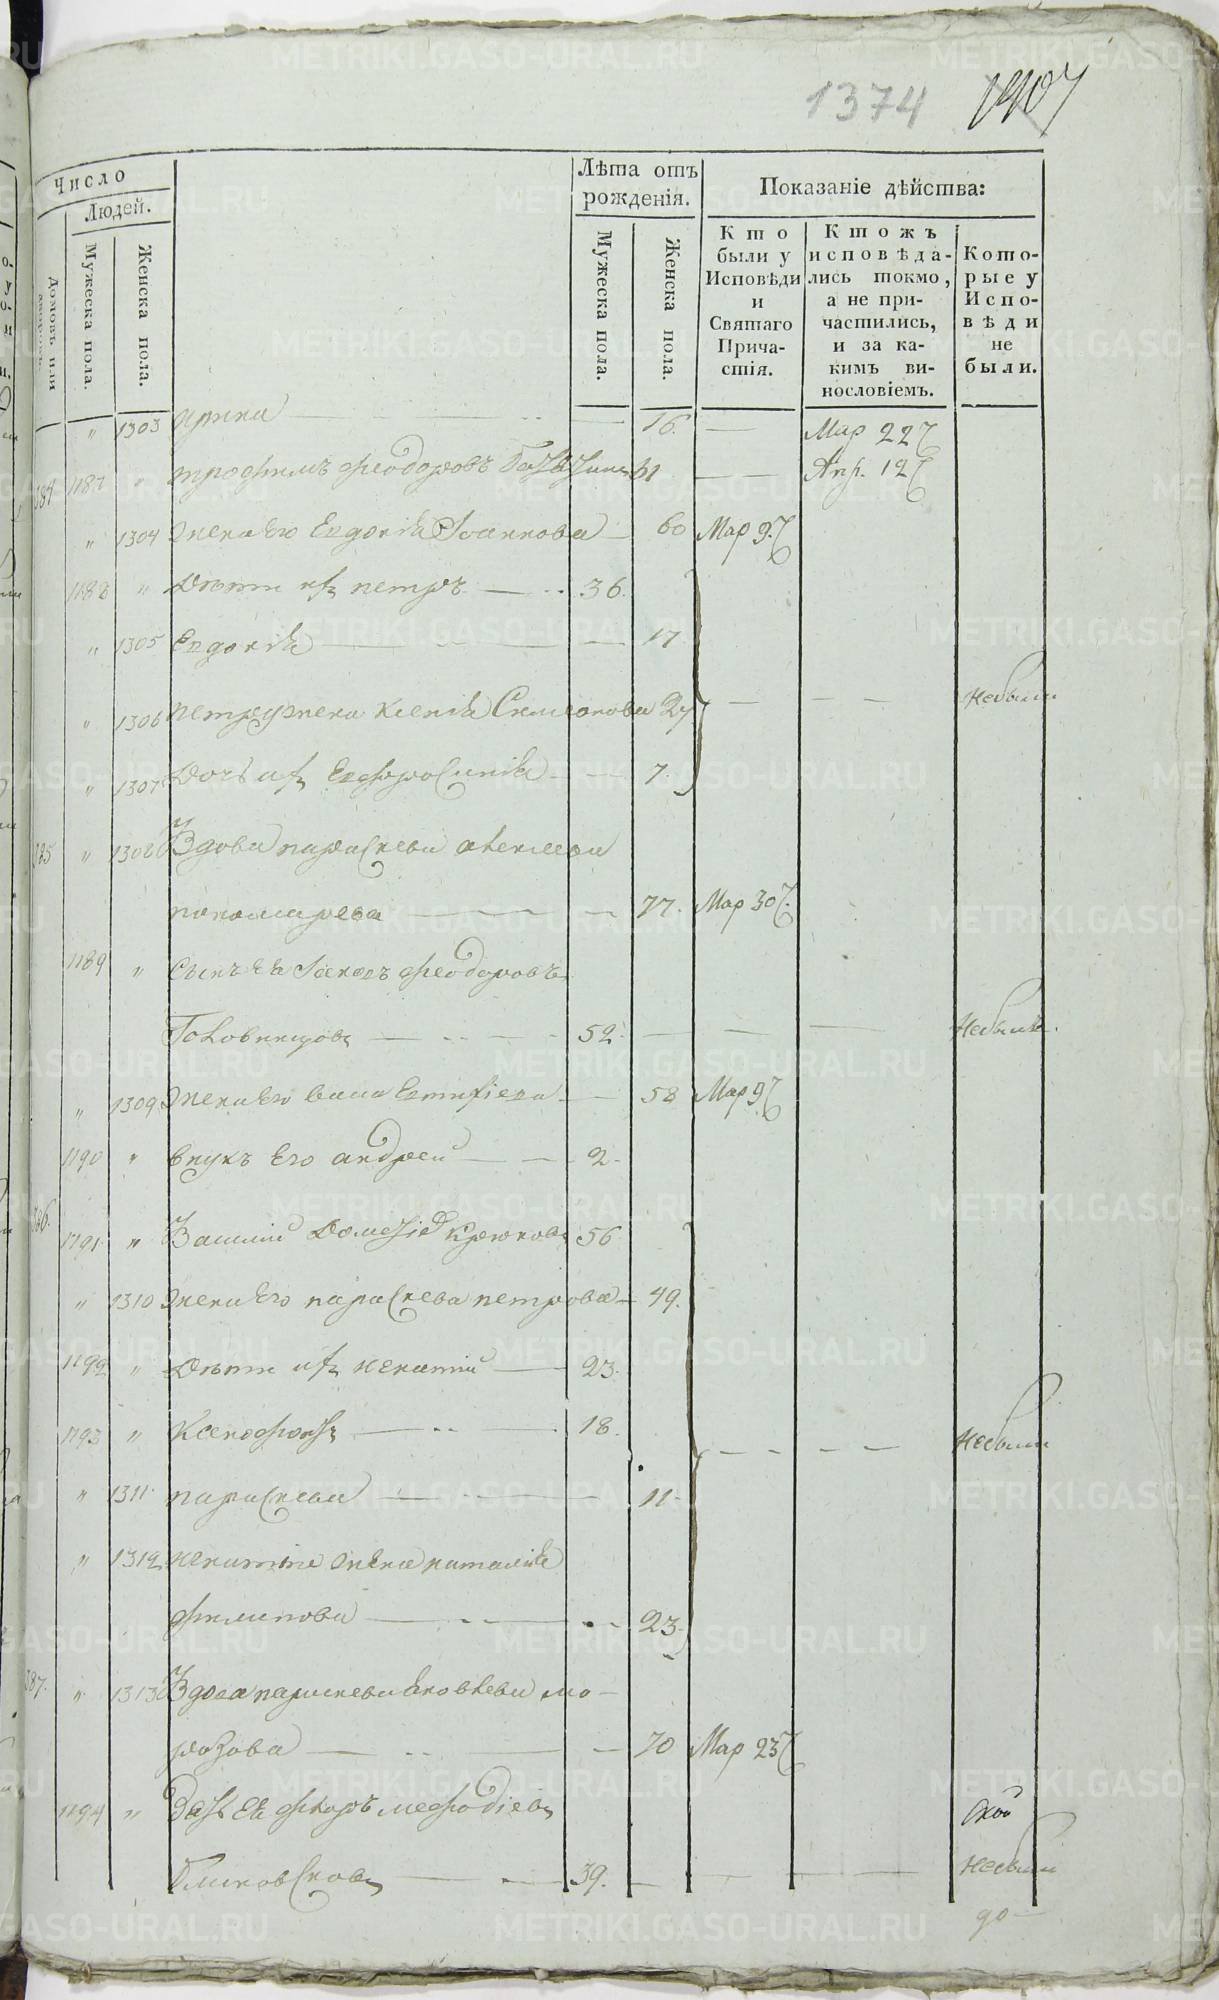 1374
1407
Число
Людей.
Домовъ или дворовъ.
Мужеска пола.
Женска пола.
Лѣта отъ рожденія.
Мужеска пола.
Женска пола.
Показаніе дѣйства:
Кто были у Исповѣди и Святаго Причастія.
Ктожъ исповѣдались токмо, а не причастились, и за какимъ винословіемъ.
Которые у Исповѣди не были.
" 1303 Ирина 16. Мар 22
384 1187 " трофимъ феодоровъ 61 Апр. 12
" 1304 жена Его Евдокія Іоаннова 60 Мар 9.
1188 " Дѣти их петръ 36.
" 1305 Евдокія 17
" 1306 петру жена Ксенія Симеонова 27 Небыли
" 1307 Дочь их Евфросинія 7.
385 " 1308 Вдова параскева алексеева
пономарева 77. Мар 30
1189 " Сынъ Ея Іаковъ феодоровъ
Головинцов 52. Небылъ.
" 1309 жена Его 58 Мар 9
1190 " внукъ Его андрей 2.
386. 1191 " Василій Крюков 56
" 1310 жена Его параскева петрова 49.
1192 " Дѣти их 23.
1193 " Ксенофонт 18. Небыли
" 1311 параскева 11.
" 1312 жена наталія
филипова 23.
387. " 1313 Вдова параскева яковлева мо-
розова 70 Мар 23
1194 " Зять Ея меѳодіев
39. Небыли